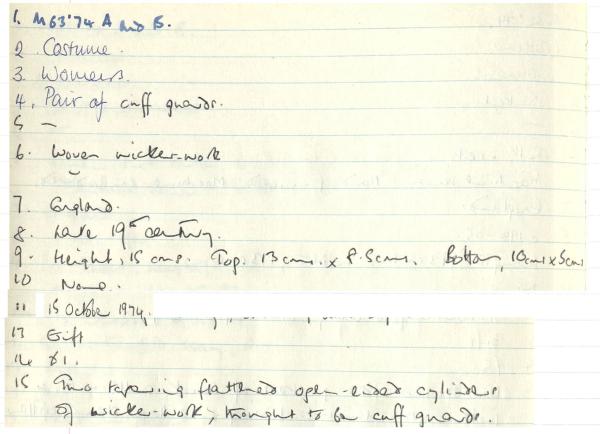 1. M63'74 A and B.
2 Costume.
3. Womens.
4. Pair of cuff guards.
5 —
6. Woven wicker-work
7. England.
8. Late 19th century.
9. Height, 15 cms. Top. 13 cms. x 8.5 cms. Bottom, 10cms x 5cms
10 None.
11 15 October 1974.
13 Gift
14 £1.
15 Two tapering flattened open-ended cylinders
of wicker-work, thought to be cuff guards.